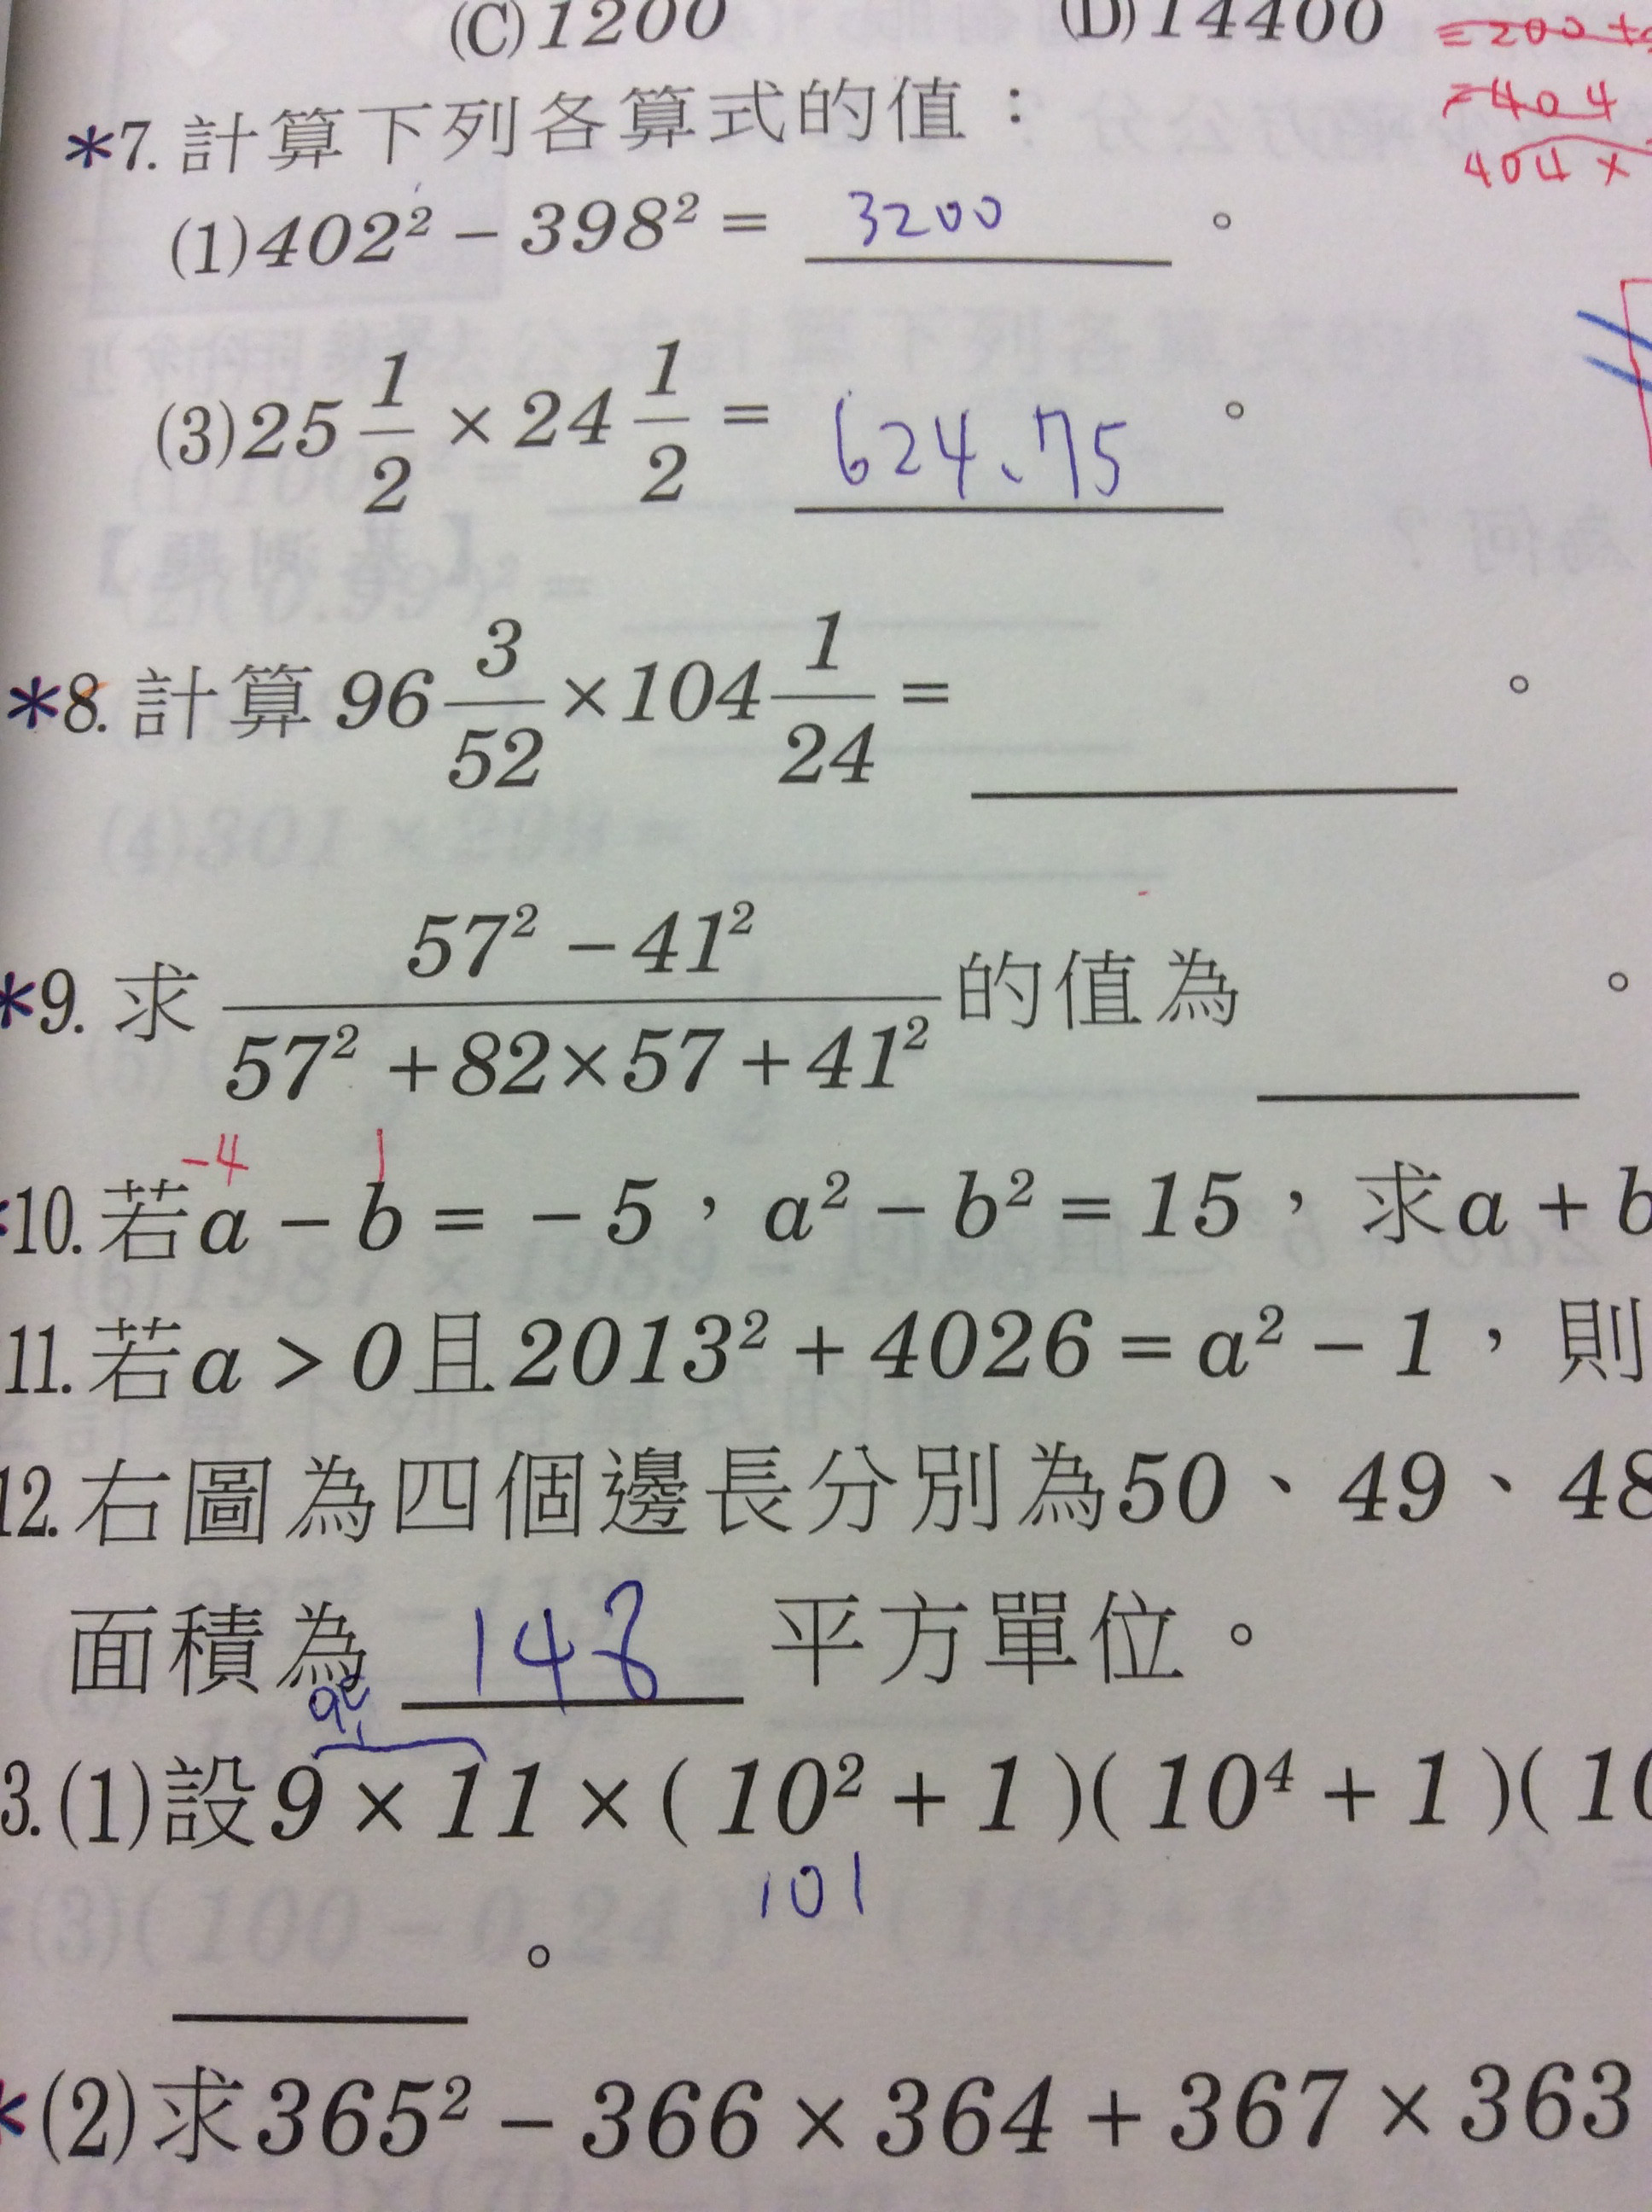 (C)1200 (D)14400 =200+
=404
404×
*7.計算下列各算式的值：
(1)402² − 398² = 3200 。
(3)25 1/2 × 24 1/2 = 624.75 。
*8.計算 96 3/52 × 104 1/24 = 。
*9.求 (57² − 41²)/(57² + 82×57 + 41²) 的值為 。
-4 1
10.若a − b = − 5，a² − b² = 15，求a + b
11.若a > 0且2013² + 4026 = a² − 1，則
12.右圖為四個邊長分別為50、49、48
面積為 148 平方單位。
3.(1)設9 × 11 × ( 10² + 1 )( 10⁴ + 1 )( 10
101
。
*(2)求365² − 366 × 364 + 367 × 363